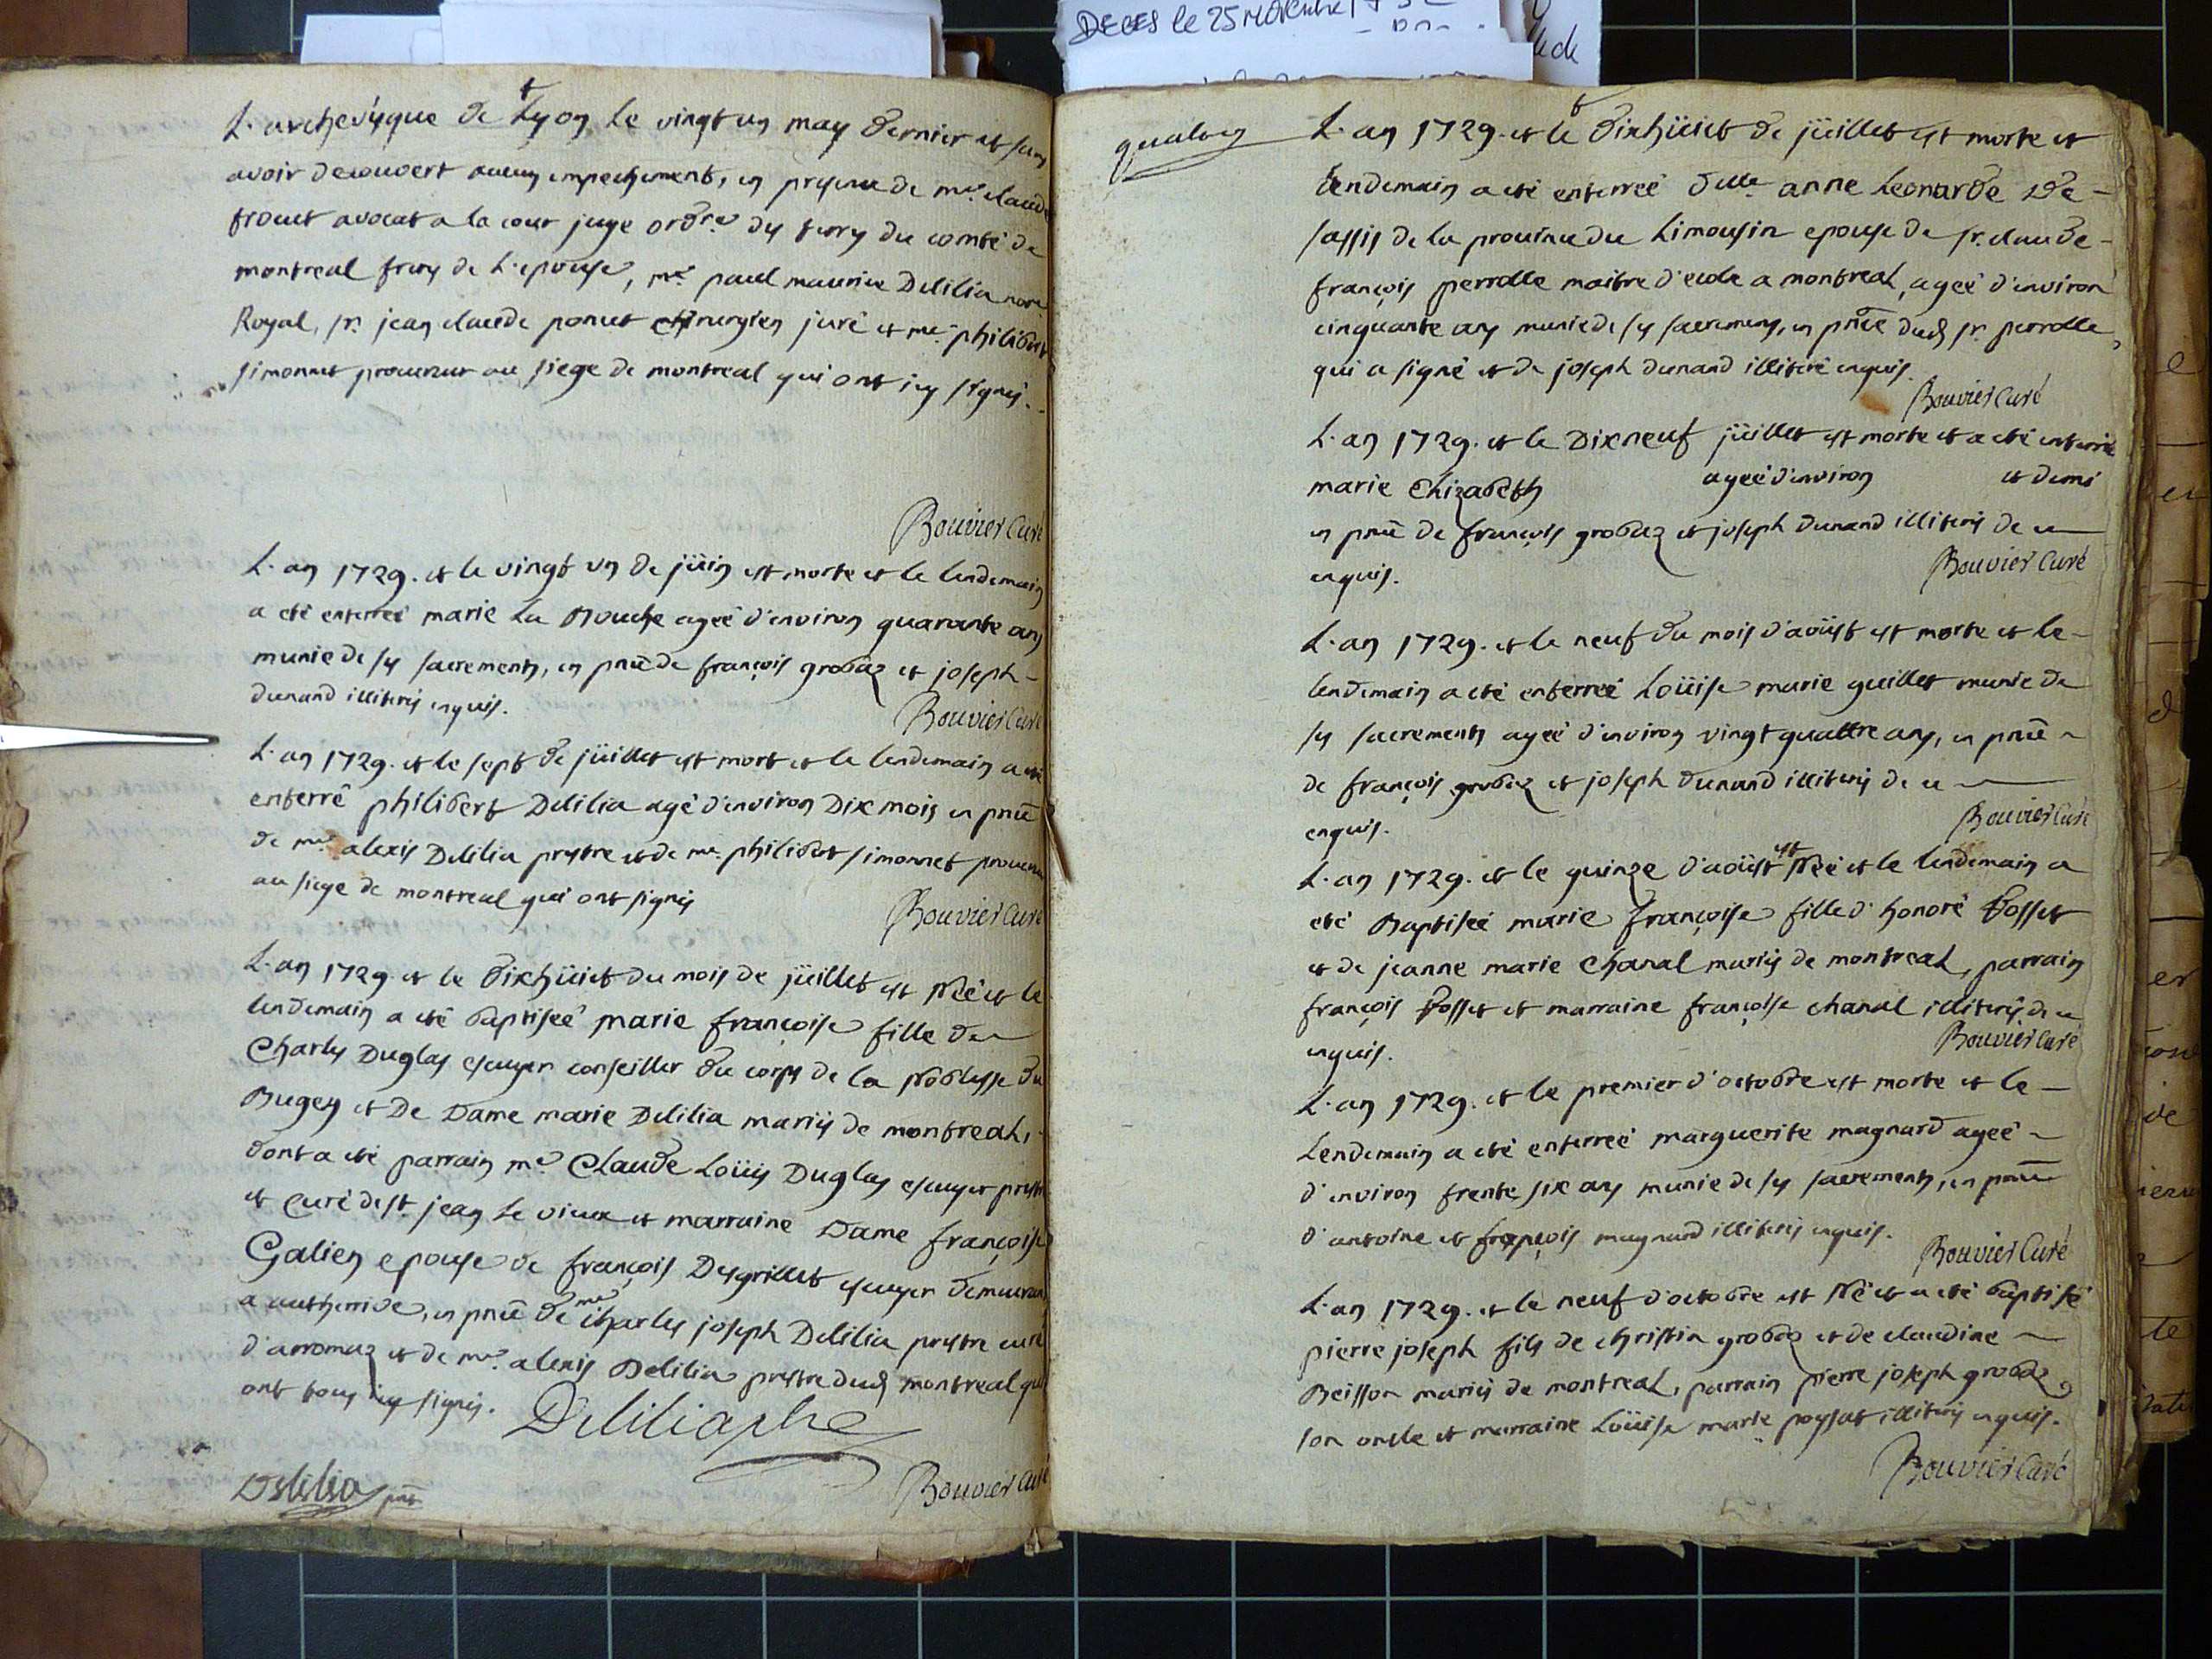 DECES le 25 Novembre 17
L'archevéque de Lyon le vingt un may dernier et sans
avoir decouvert aucun empechement, en presence de mre. claude
trouet avocat a la cour juge ordre. des terres du comté de
montreal frere de L'epouse, mre paul maurice Delilia nore
Royal, sr. jean claude poncet chirurgien juré et me. philibert
simonnet procureur au siege de montreal qui ont icy signés.
Bouvier Curé
L'an 1729. et le vingt un de jüin est morte et le lendemain
a eté enterreé marie La Mouche ageé d'environ quarante ans
munie de ses sacrements, en pnce de françois grobaz et joseph
dunand illiterés enquis.
Bouvier Curé
L'an 1729. et le sept de jüillet est mort et le lendemain a eté
enterré philibert Delilia agé d'environ Dix mois en pnce
de mre alexis Delilia prestre et de me. philibert simonnet procureur
au siege de montreal qui ont signés
Bouvier Curé
L'an 1729. et le Dixhüict du mois de jüillet est Neé et le
lendemain a eté baptiseé marie françoise fille de
Charles Duglas escuyer conseiller du corps de la Noblesse du
Bugey et De Dame marie Delilia mariés de montreal,
dont a eté parrain mre. Claude Loüis Duglas escuyer prestre
et curé de st. jean le vieux et marraine Dame françoise
Galien epouse de françois Desgrillet escuyer demeurant
a authenive, en pnce de mre Charles joseph Delilia prestre curé
d'arromaz et de mre. alexis Delilia prestre dud montreal qui
ont tous icy signés.
Delilia ptre
Delilia
Bouvier Curé
L'an 1729. et le Dixhüict de jüillet est morte et
Lendemain a eté enterreé delle anne Leonarde De
sassis de la province du Limousin epouse de sr. claude
françois perrolle maitre d'ecole a montreal, ageé d'environ
cinquante ans munie de ses sacremens, en pnce dud sr. perrolle,
qui a signé et de joseph dunand illiteré enquis.
Bouvier Curé
L'an 1729. et le Dixneuf jüillet est morte et a eté enterrée
marie Elizabeth ageé d'environ et demi
en pnce de françois grobaz et joseph Dunand illiterés de ce
enquis.
Bouvier Curé
L'an 1729. et le neuf du mois d'aoüst est morte et le
lendemain a eté enterreé Loüise marie guillet munie de
ses sacrements ageé d'environ vingt quattre ans, en pnce
de françois grobaz et joseph Dunand illiterés de ce
enquis.
Bouvier Curé
L'an 1729. et le quinze d'aoüst est Neé et le lendemain a
eté Baptiseé marie françoise fille d'honoré Tosset
et de jeanne marie Chanal mariés de montreal, parrain
françois Tosset et marraine françoise chanal illiterés de ce
enquis.
Bouvier Curé
L'an 1729. et le premier d'octobre est morte et le
Lendemain a eté enterreé marguerite magnard ageé
d'environ trente six ans munie de ses sacrements, en pnce
d'antoine et françois magnard illiterés enquis.
Bouvier Curé
L'an 1729. et le neuf d'octobre est Né et a eté baptisé
pierre joseph fils de christin grobaz et de claudine
Beisson mariés de montreal, parrain pierre joseph grobaz
son oncle et marraine Loüise marie poysat illiterés enquis.
Bouvier Curé